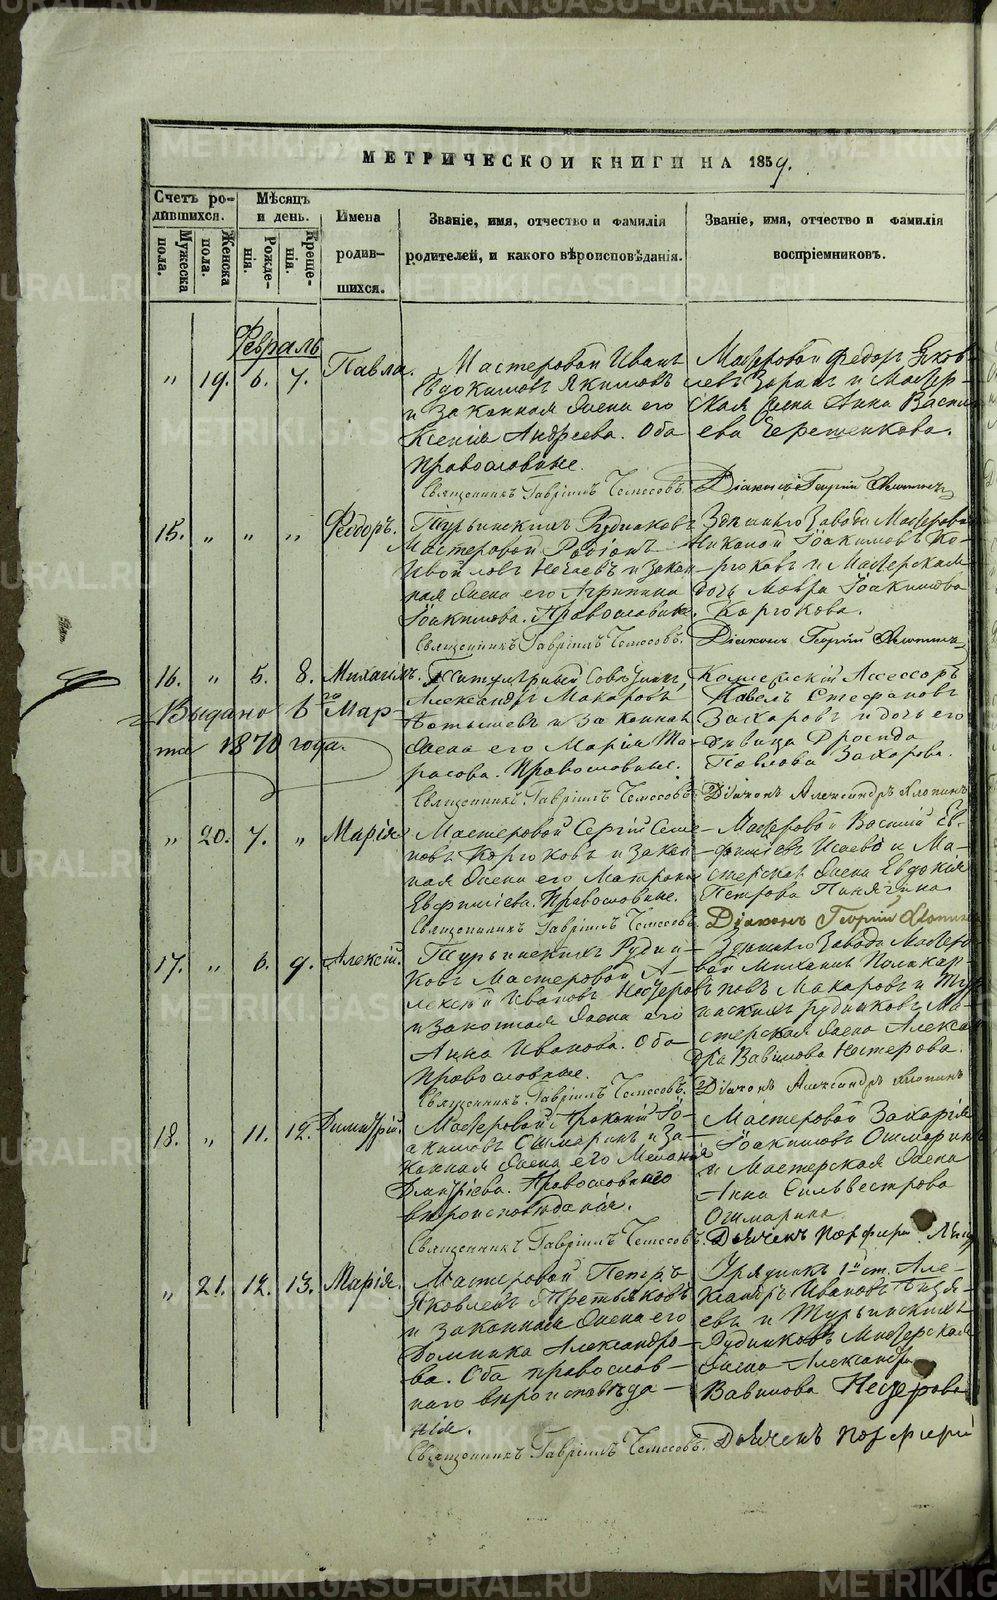 МЕТРИЧЕСКОЙ КНИГИ НА 1859.
Счетъ ро-
дившихся.
Мужеска
пола.
Женска
пола.
Мѣсяцъ
и день.
Рожде-
нія.
Креще-
нія.
Имена
родив-
шихся.
Званіе, имя, отчество и фамилія
родителей, и какого вѣроисповѣданія.
Званіе, имя, отчество и фамилія
воспріемниковъ.
Февраль
" 19. 6. 7. Павла.
Мастеровой Иванъ
Евдокимовъ Якимовъ
и законная жена его
Ксенія Андреева. Оба
православные.
Священникъ Гавріилъ Чемесовъ.
Мастеровой Федоръ Яков-
левъ Зоринъ и Мастер-
ская жена Анна Васил
ева Черешенкова.
Діаконъ Георгій
15. " " " Феодоръ.
Турьинскихъ Рудниковъ
Мастеровой Родіонъ
Нечаевъ и закон
ная жена его Агрипина
Іоакимова. Православные.
Священникъ Гавріилъ Чемесовъ.
Здешняго Завода Мастеровой
Никаноръ Іоакимовъ Ко-
ргоковъ и Мастерская
дочь Мавра Іоакимова
Коргокова.
Діаконъ Георгій
16. " 5. 8. Михаилъ.
Выдано 6го Мар-
та 1870 года.
Титулярный Совѣтникъ
Александръ Макаровъ
и законная
жена его Марія Та-
расова. Православные.
Священникъ Гавріилъ Чемесовъ.
Коллежскій Ассесоръ
Павелъ Стефановъ
Захаровъ и дочь его
дѣвица
Павлова Захарова.
Діаконъ Александръ Хлопинъ
" 20. 7. " Марія
Мастеровой Сергій Семе-
новъ Коргоковъ и закон-
ная жена его Матрона
Евфиміева. Православные.
Священникъ Гавріилъ Чемесовъ.
Мастеровой Василій Ев-
фиміевъ Исаевъ и Ма-
стерская жена Евдокія
Петрова Пинягина
Діаконъ Георгій Хлопинъ
17. " 6. 9. Алексій.
Турьинскихъ Рудни-
ковъ Мастеровой А-
лексѣй Ивановъ Нестеровъ
и законная жена его
Анна Иванова. Оба
Православные.
Священникъ Гавріилъ Чемесовъ.
Здешняго Завода Мастеро-
вой Михаилъ Поликар-
повъ Макаровъ и Тур
инскихъ рудниковъ Ма-
стерская жена Алексан
дра Вавилова Нестерова.
Діаконъ Александръ Хлопинъ
18. " 11. 12. Димитрій.
Мастеровой Прокопій Іо-
акимовъ Ошмаринъ и За-
конная жена его Меланія
Дмитріева. Православнаго
вѣроисповѣданія.
Священникъ Гавріилъ Чемесовъ.
Мастеровой Захарія
Іоакимовъ Ошмаринъ
и Мастерская жена
Анна Сильвестрова
Ошмарина.
Дьячекъ Порфирій
" 21. 12. 13. Марія.
Мастеровой Петръ
Яковлевъ Третьяковъ
и законная жена его
Домника Александро-
ва. Оба православ-
наго вѣроисповѣда-
нія.
Священникъ Гавріилъ Чемесовъ.
Урядникъ 1й ст. Але-
ксандръ Ивановъ
евъ и Турьинскихъ
Рудниковъ Мастерская
жена Александра
Вавилова Нестерова
Дьячекъ Порфирій
METRIKI.GASO-URAL.RU